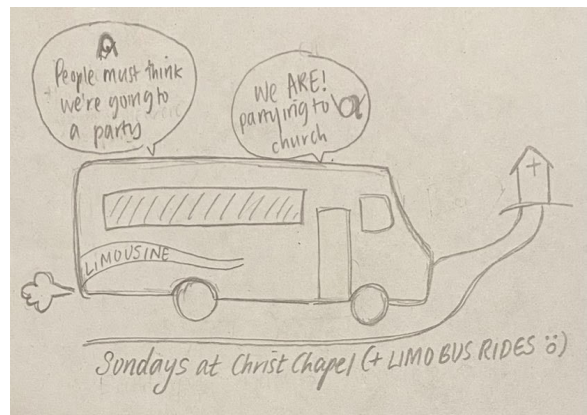 People must think
we're going to
a party
We ARE!
partying to
church
LIMOUSINE
Sundays at Christ Chapel (+ LIMO BUS RIDES :o)